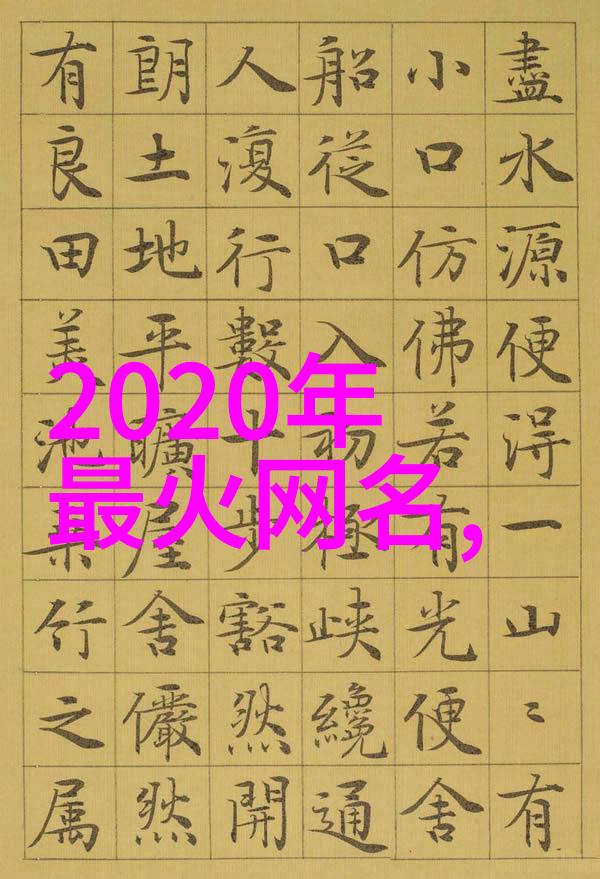 盡水源便得一山〻有
小口仿佛若有光便舍
船從口入初極峽纔通
人復行數十步豁然開
朗土地平曠屋舍儼然
有良田美池桑竹之属
2020年
最火网名,